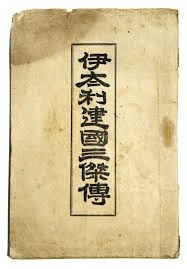 伊太利建國三傑傳